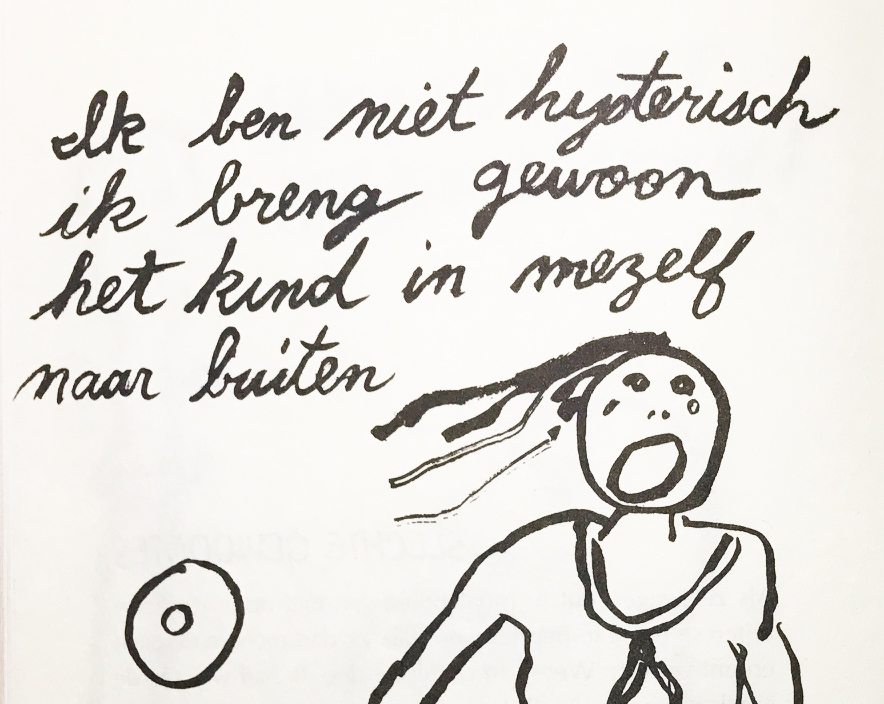 Ik ben niet hysterisch
ik breng gewoon
het kind in mezelf
naar buiten